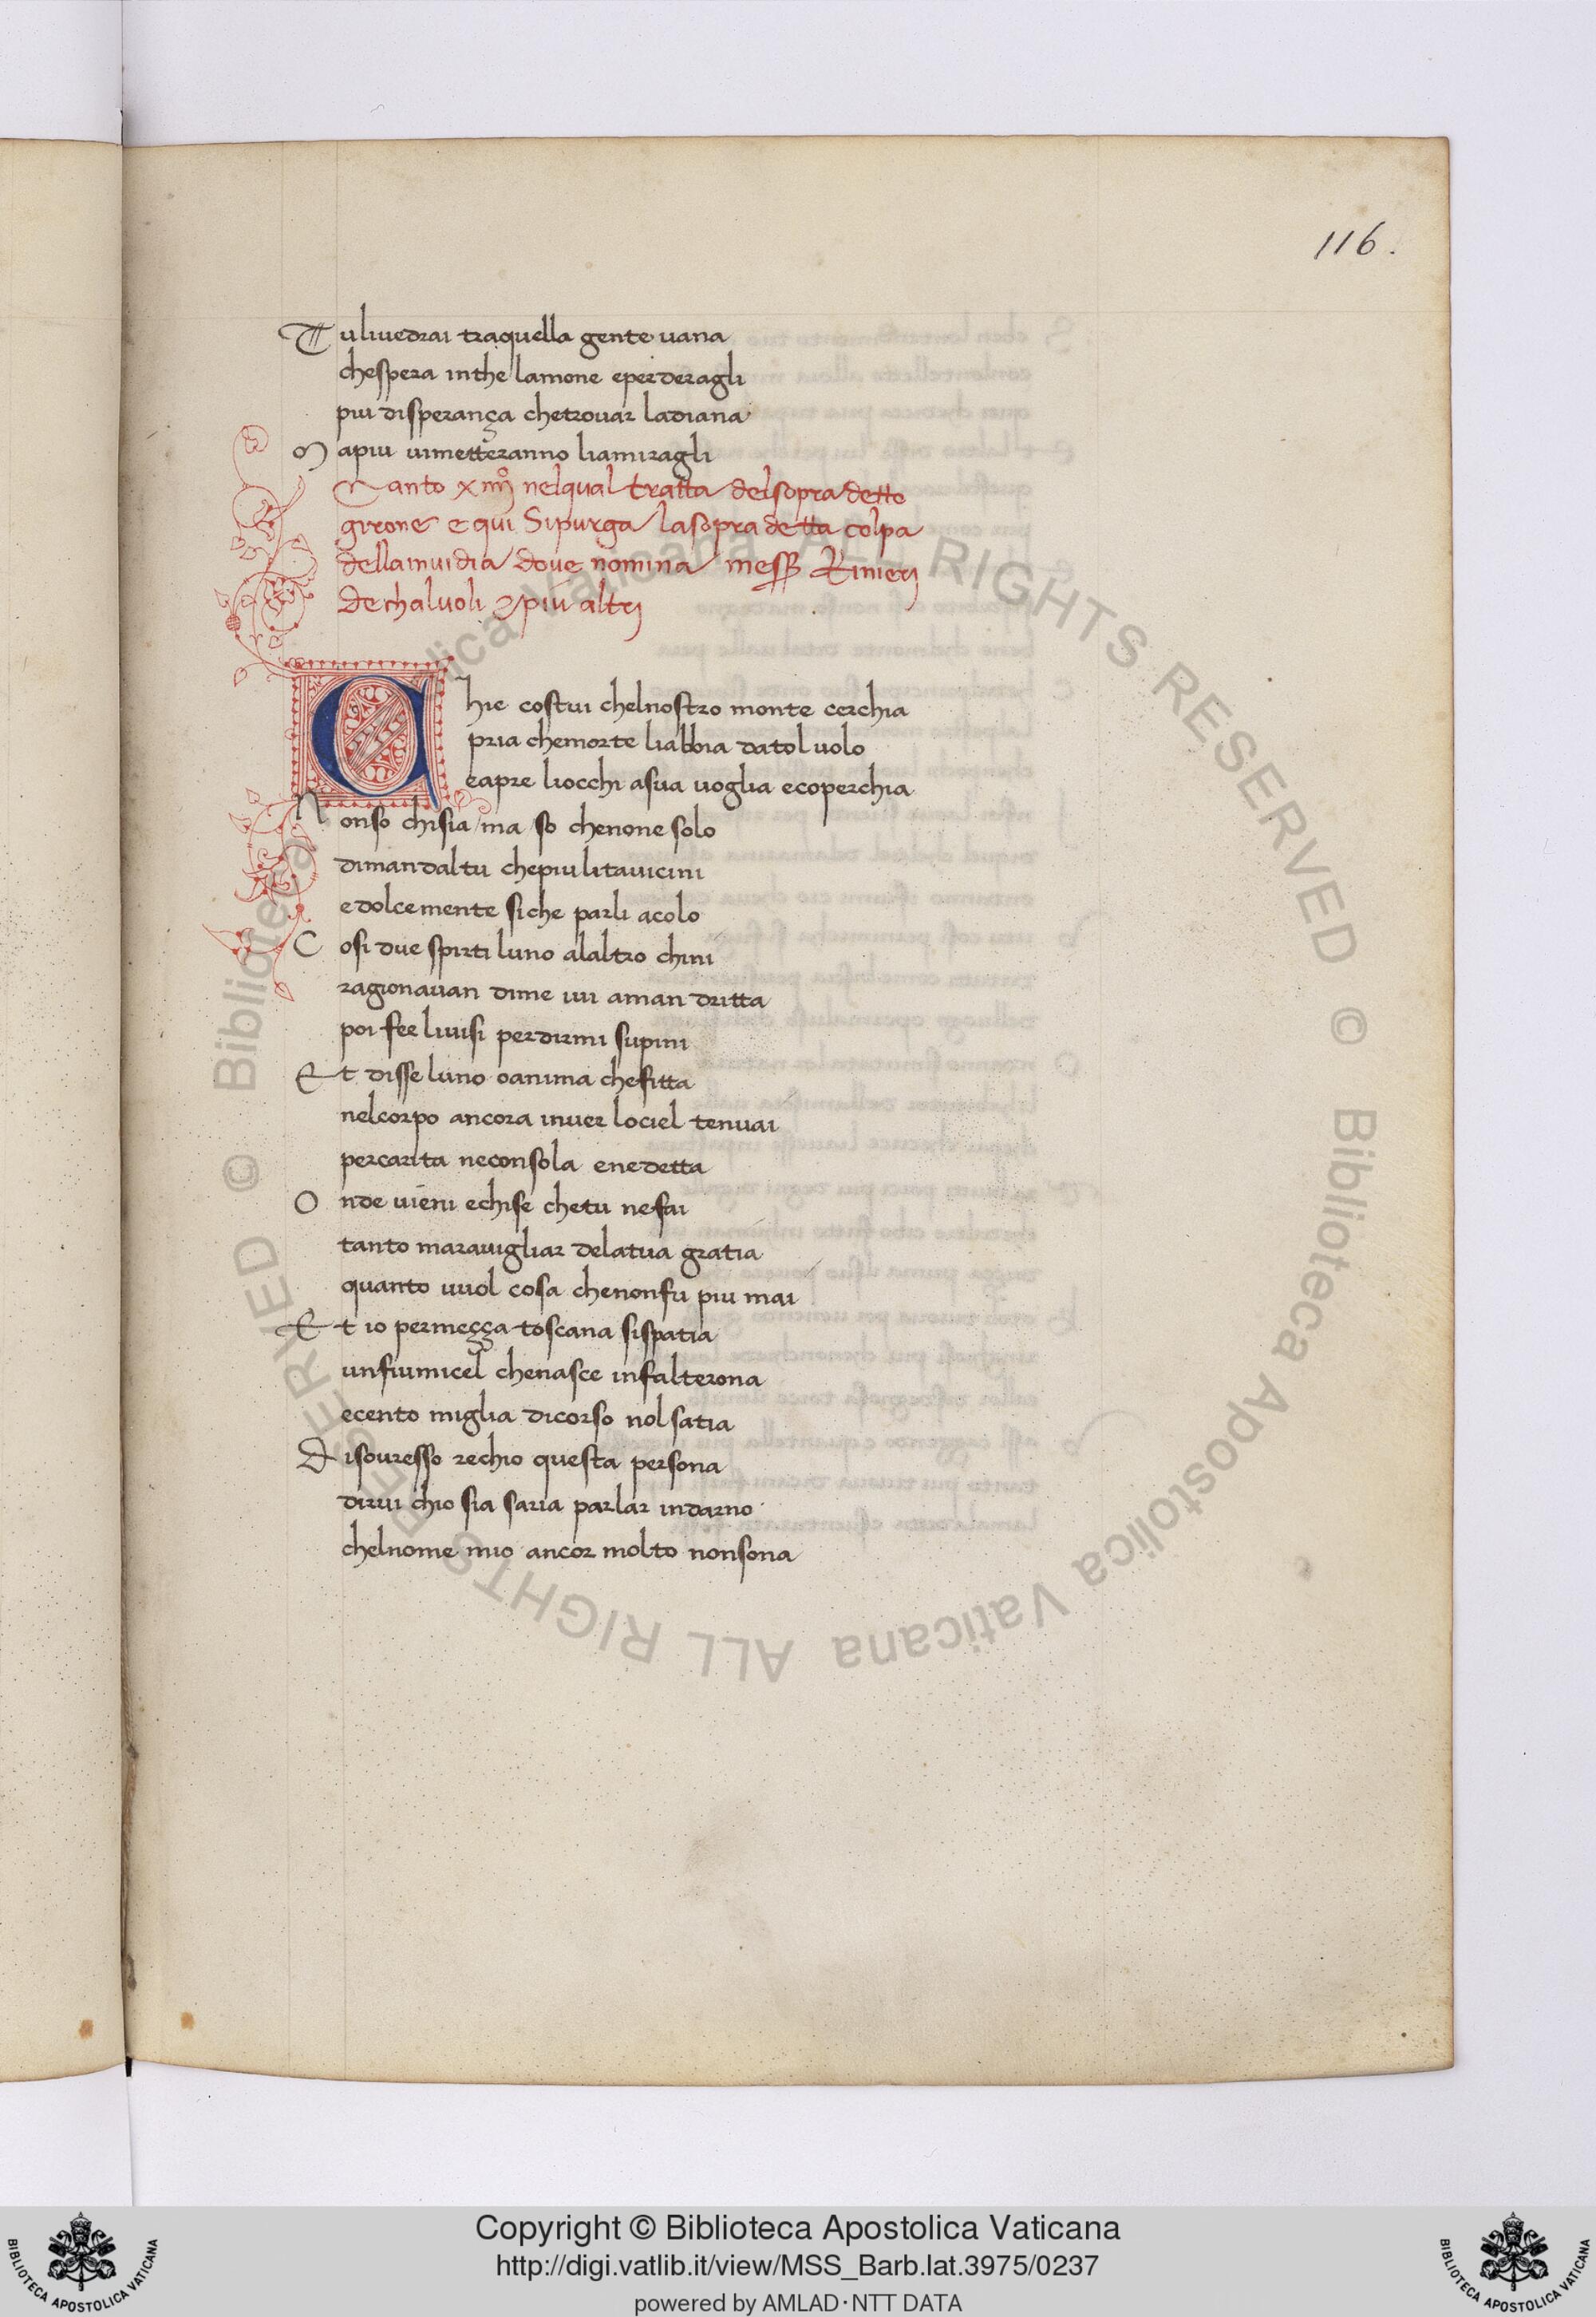 116.
Tu livedrai traquella gente vana
chespera inthelamone eperderagli
piu disperança chetrovar ladiana
Mapiu vimetteranno liamiragli
Canto xiiijº nelqual tratta delsopra detto
girone e qui Sipurga lasopra detta colpa
dellainvidia dove nomina messer Rinieri
dechalvoli & piu altrj
Chie costui chelnostro monte cerchia
pria chemorte liabbia datol volo
eapre liocchi asua voglia ecoperchia
Nonso chisia / ma so chenone solo
dimandaltu chepiu litavicini
edolcemente siche parli acolo
Cosi due spirti luno alaltro chini
ragionavan dime ivi aman dritta
poi fee livisi perdirmi supini
Et disse luno oanima chefitta
nelcorpo ancora inver lociel tenvai
percarita neconsola enedetta
Onde vieni echise chetu nefai
tanto maravigliar delatua gratia
quanto vuol cosa chenonfu piu mai
Et io permeçça toscana sispatia
unfiumicel chenasce infalterona
ecento miglia dicorso nol satia
Disovresso rechio questa persona
dirvi chio sia saria parlar indarno
chelnome mio ancor molto nonsona
© Biblioteca Apostolica Vaticana ALL RIGHTS RESERVED © Biblioteca Apostolica Vaticana ALL RIGHTS RESERVED
Copyright © Biblioteca Apostolica Vaticana
http://digi.vatlib.it/view/MSS_Barb.lat.3975/0237
powered by AMLAD·NTT DATA
BIBLIOTECA APOSTOLICA VATICANA
BIBLIOTECA APOSTOLICA VATICANA